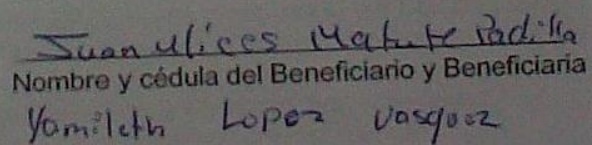 Juan Ulices Matute Padilla
Nombre y cédula del Beneficiario y Beneficiaria
Yamileth Lopez Vasquez